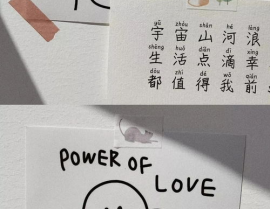 yǔ zhòu shān hé làng
宇宙山河浪
shēng huó diǎn dī xìng
生活点滴幸
dōu zhí dé wǒ qián
都值得我前
POWER OF LOVE